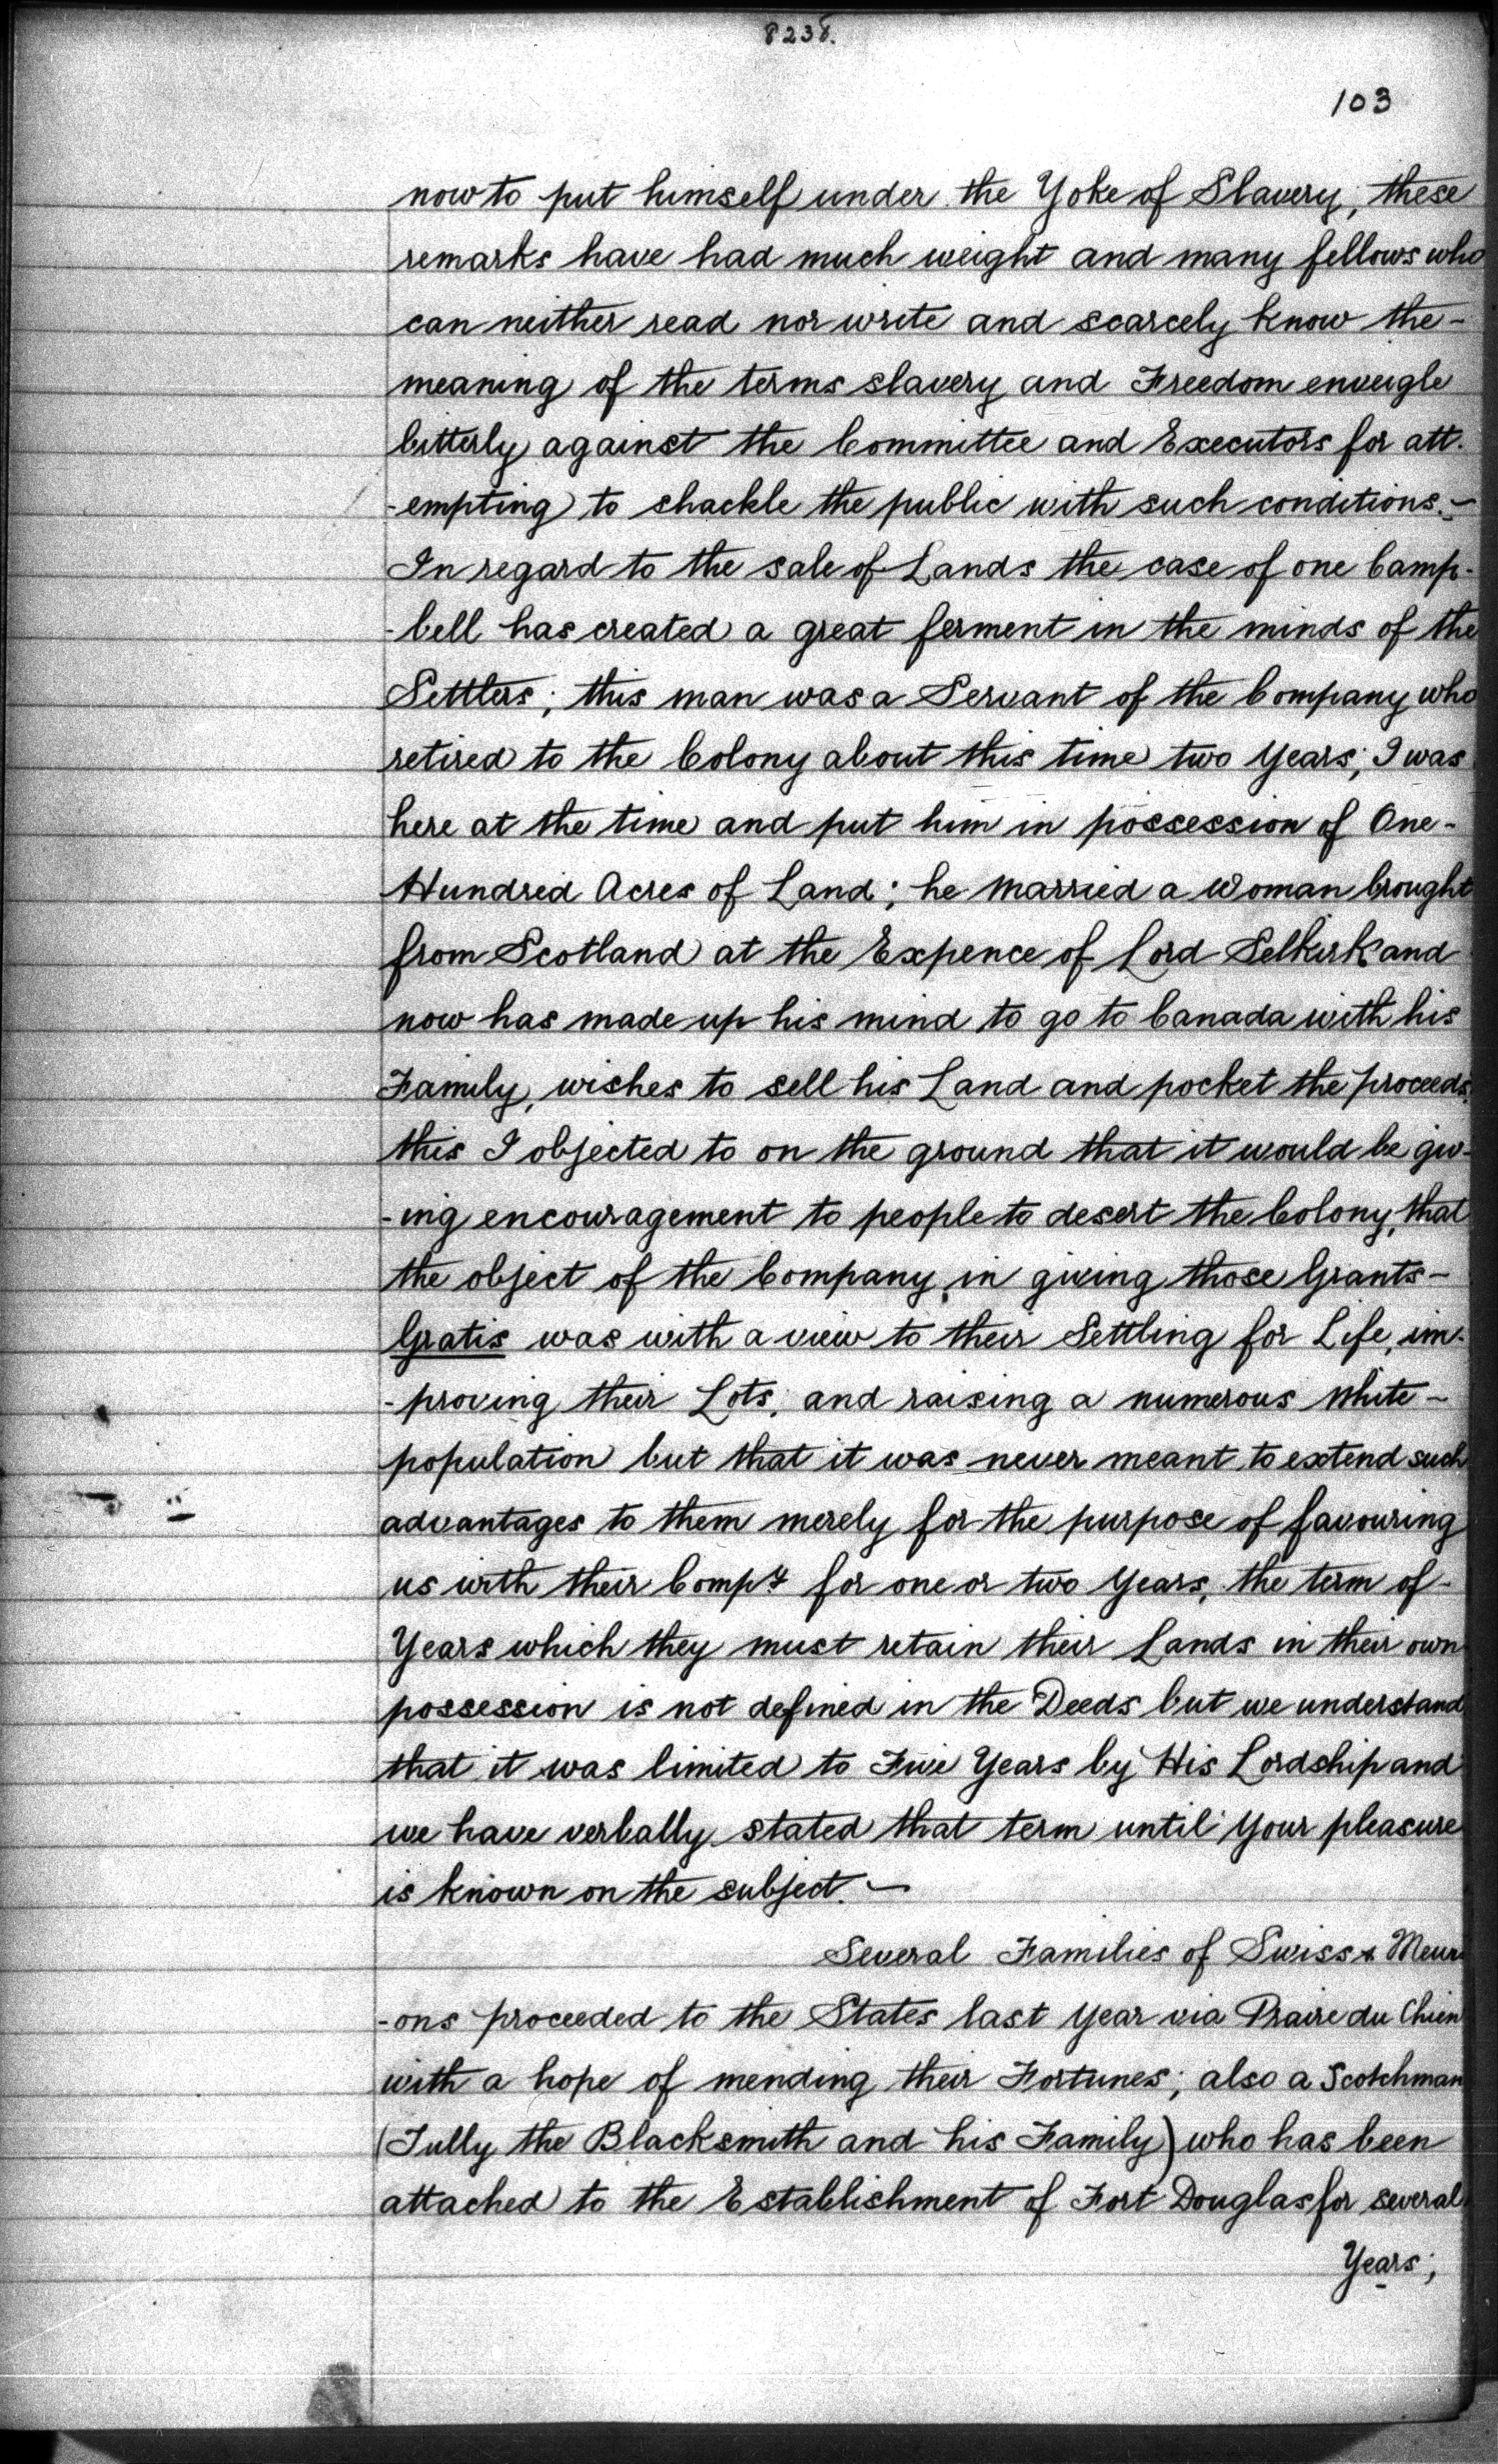 8238.
103
now to put himself under the Yoke of Slavery; these
remarks have had much weight and many fellows who
can neither read nor write and scarcely know the-
meaning of the terms slavery and Freedom enveigle
bitterly against the Committee and Executors for att-
-empting to shackle the public with such conditions.-
In regard to the sale of Lands the case of one Camp-
-bell has created a great ferment in the minds of the
Settlers; this man was a Servant of the Company who
retired to the Colony about this time two Years; I was
here at the time and put him in possession of One-
Hundred Acres of Land; he married a Woman brought
from Scotland at the Expence of Lord Selkirk and
now has made up his mind to go to Canada with his
Family, wishes to sell his Land and pocket the proceeds,
this I objected to on the ground that it would be giv-
-ing encouragement to people to desert the Colony, that
the object of the Company, in giving those Grants-
Gratis was with a view to their Settling for Life, im-
-proving their Lots, and raising a numerous White-
population but that it was never meant to extend such
advantages to them merely for the purpose of favouring
us with their Compy for one or two Years, the term of-
Years which they must retain their Lands in their own
possession is not defined in the Deeds but we understand
that it was limited to Five Years by His Lordship and
we have verbally stated that term until Your pleasure
is known on the subject.-
Several Families of Swiss & Meur-
-ons proceeded to the States last Year via Praire du Chien
with a hope of mending their Fortunes; also a Scotchman
(Tully the Blacksmith and his Family) who has been
attached to the Establishment of Fort Douglas for several
Years;